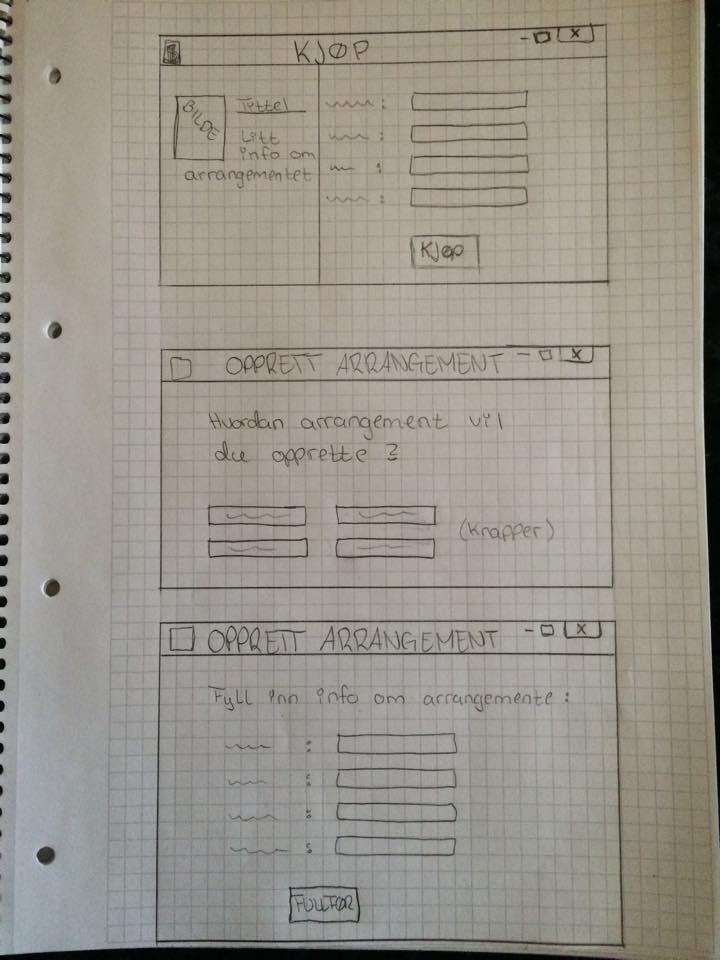 KJØP
- □ X
BILDE
Tittel
Litt
info om
arrangementet
:
:
:
:
KJØP
OPPRETT ARRANGEMENT
- □ X
Hvordan arrangement vil
du opprette ?
(Knapper)
OPPRETT ARRANGEMENT
- □ X
Fyll inn info om arrangemente :
:
:
:
:
FULLFØR